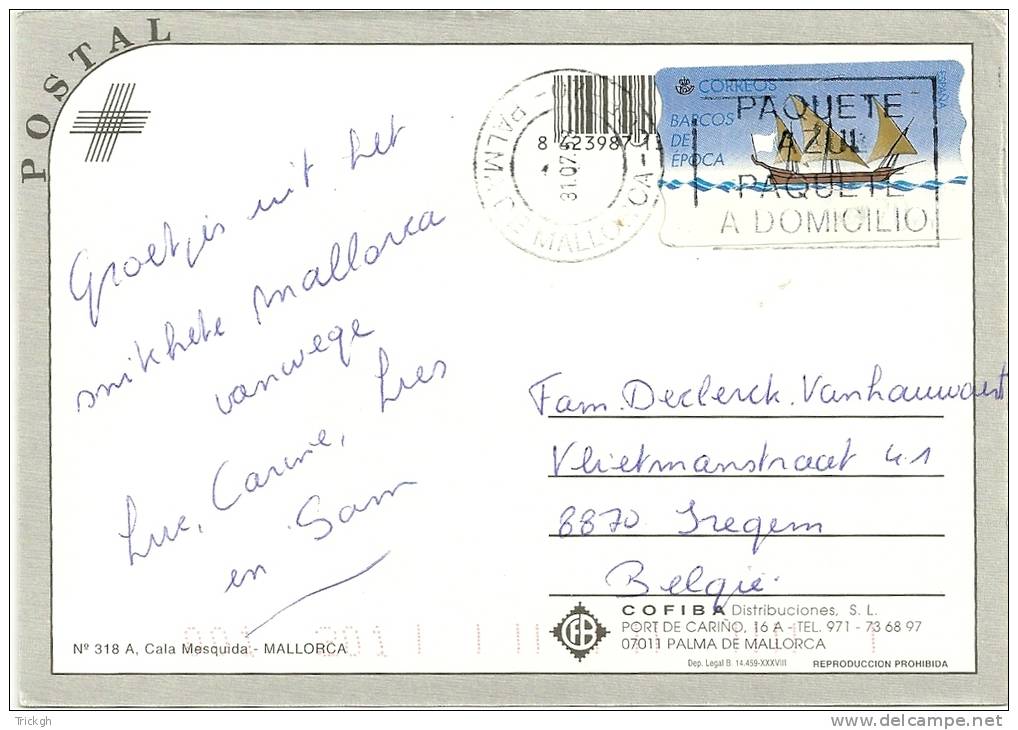 POSTAL
Groetjes uit het
snikhete Mallorca
vanwege
Luc, Carine, Lies
en Sam
8 423987 1
PALMA DE MALLORCA
31.07.
CORREOS
ESPAÑA
BARCOS
DE
EPOCA
PAQUETE
AZUL
PAQUETE
A DOMICILIO
Fam. Declerck. Vanhauwaert
Vlietmanstraat 41
8870 Izegem
België.
COFIBA Distribuciones, S. L.
PORT DE CARIÑO, 16 A - TEL. 971 - 73 68 97
07011 PALMA DE MALLORCA
Dep. Legal B. 14.459-XXXVIII
REPRODUCCION PROHIBIDA
Nº 318 A, Cala Mesquida - MALLORCA
Trickgh
www.delcampe.net